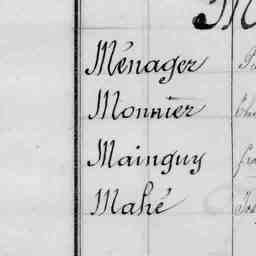 M
Ménager
Monnier
Mainguy
Mahé